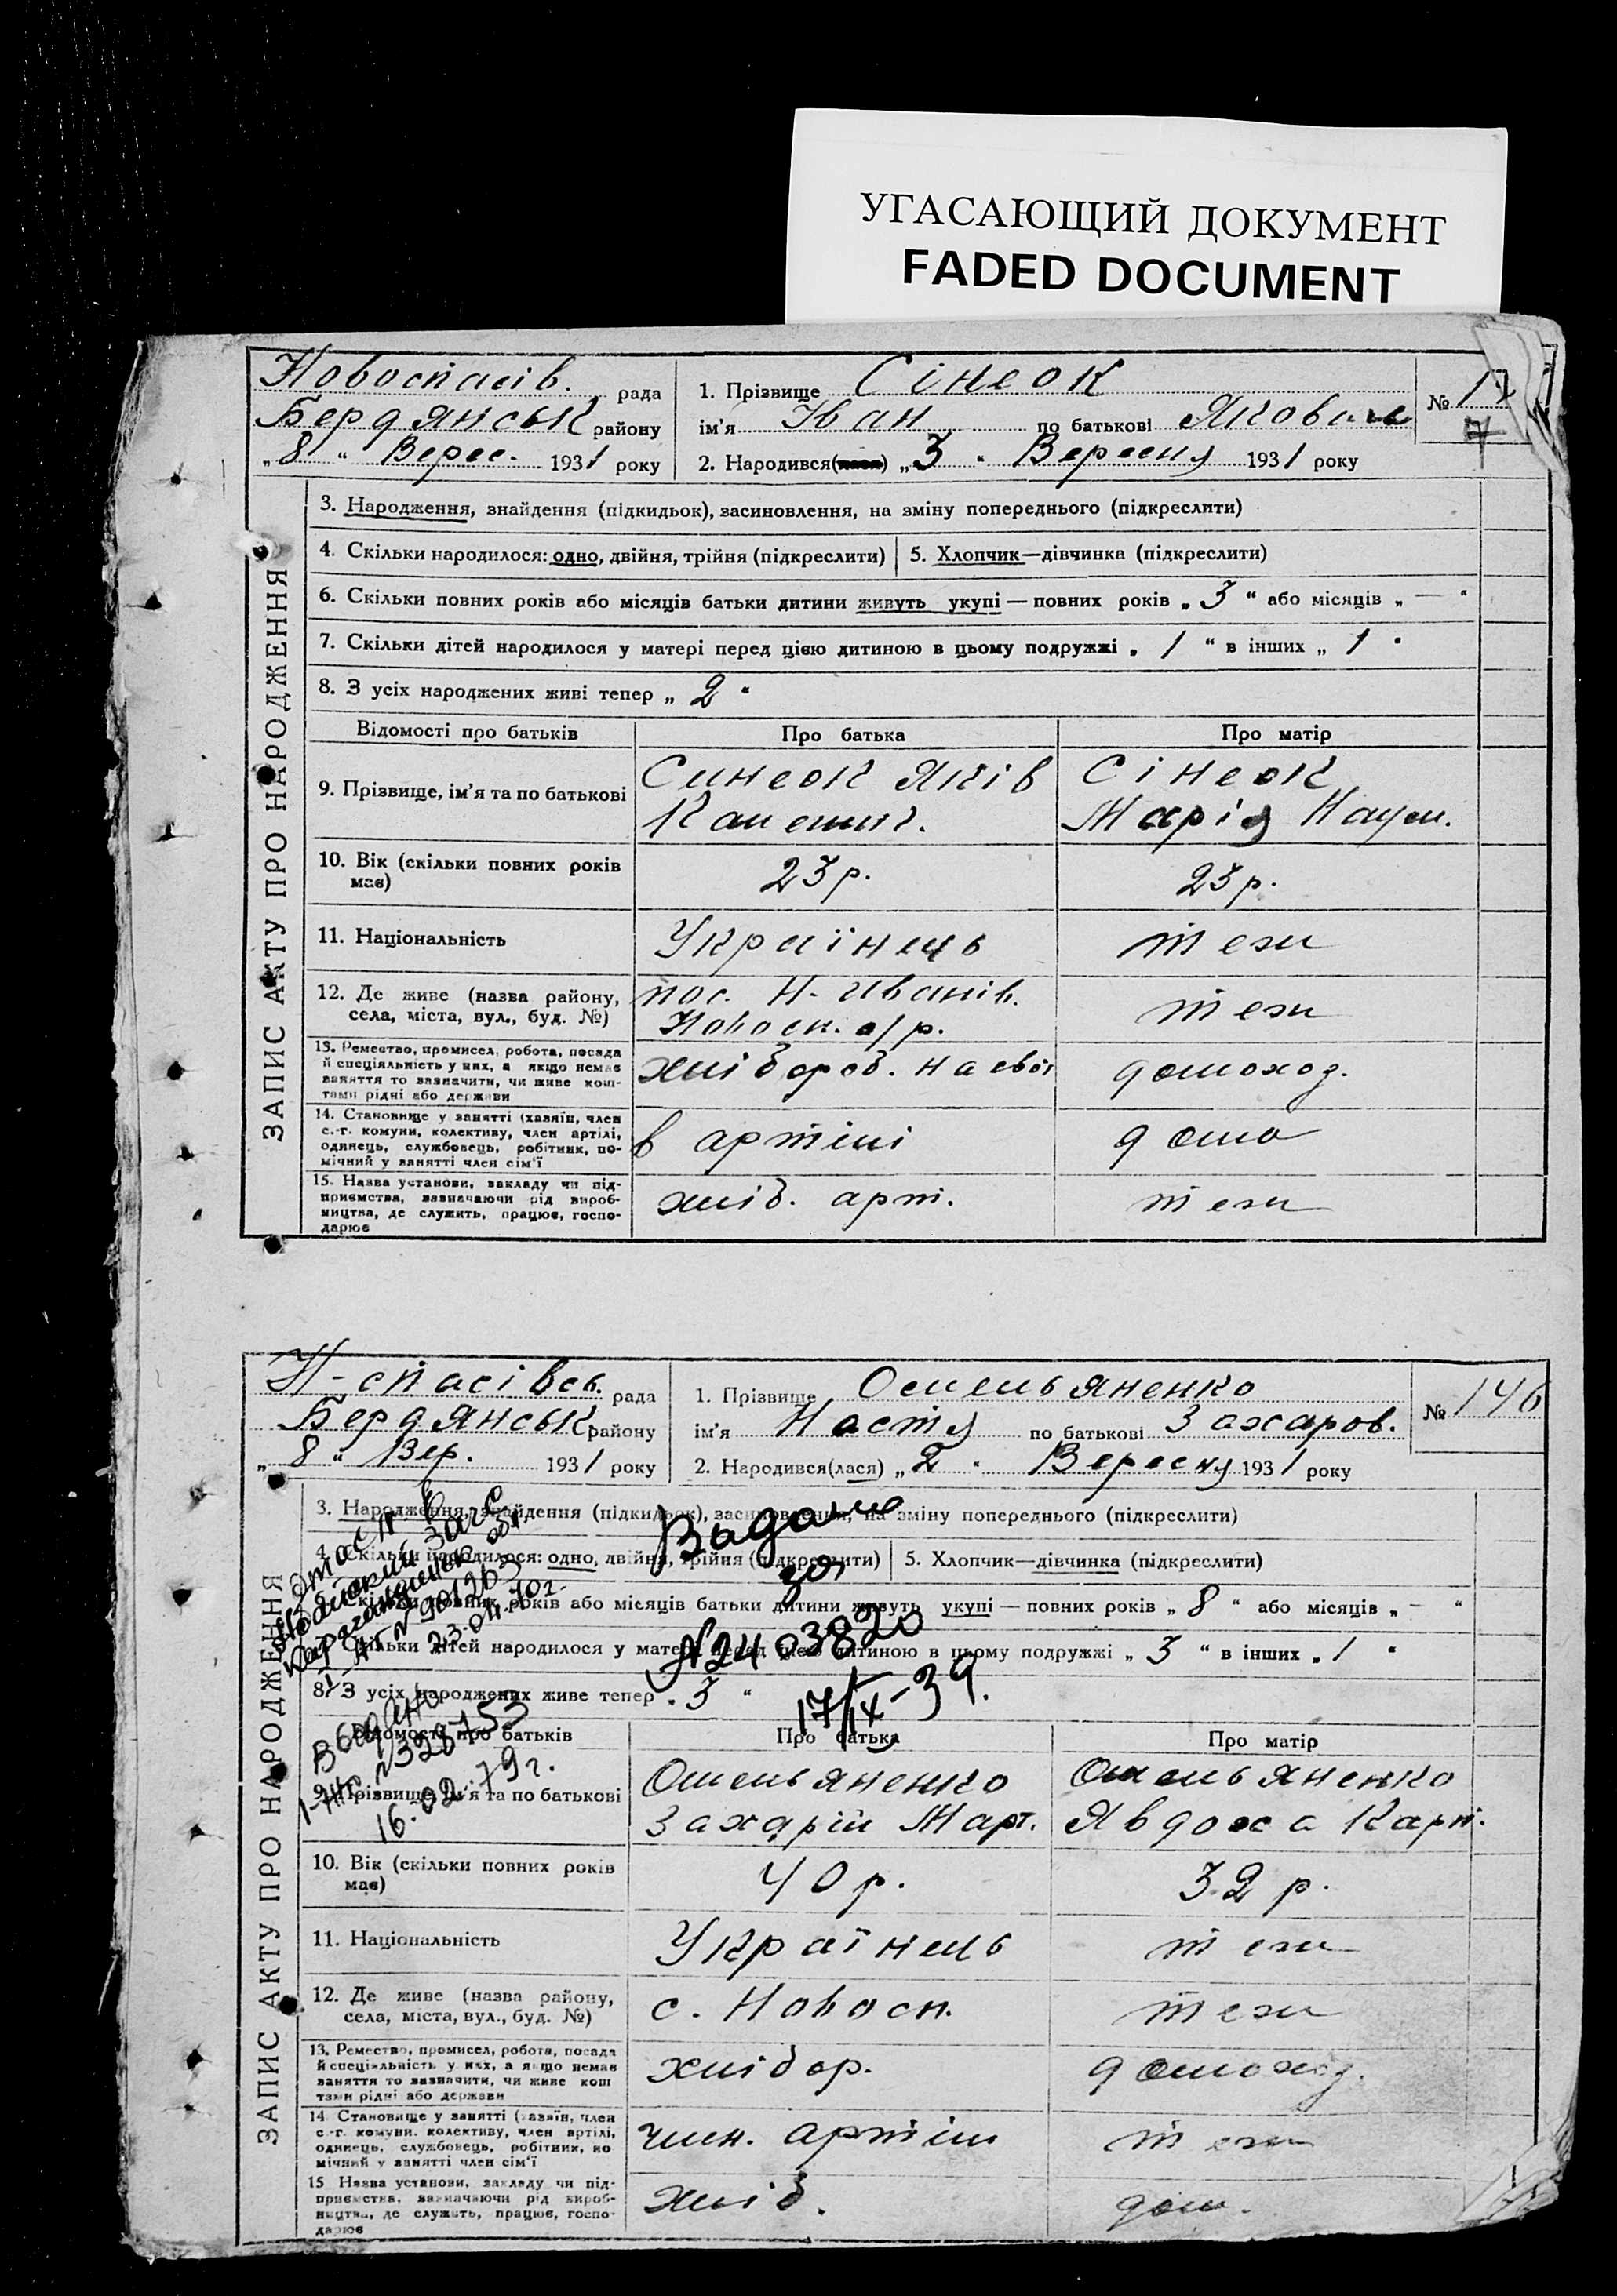 УГАСАЮЩИЙ ДОКУМЕНТ
FADED DOCUMENT
Новоспасів. рада
Бердянськ району
„8“ Верес. 1931 року
1. Прізвище Сінеок
ім'я Іван по батькові Яковл.
2. Народився(лася) „3“ Вересня 1931 року
№ 17
7
ЗАПИС АКТУ ПРО НАРОДЖЕННЯ
3. Народження, знайдення (підкидьок), засиновлення, на зміну попереднього (підкреслити)
4. Скільки народилося: одно, двійня, трійня (підкреслити) 5. Хлопчик—дівчинка (підкреслити)
6. Скільки повних років або місяців батьки дитини живуть укупі — повних років „3“ або місяців „—“
7. Скільки дітей народилося у матері перед цією дитиною в цьому подружжі „1“ в інших „1“
8. З усіх народжених живі тепер „2“
Відомості про батьків Про батька Про матір
9. Прізвище, ім'я та по батькові
Синеок Яків
Сінеок
Марія Наум.
10. Вік (скільки повних років має)
23 р.
23 р.
11. Національність
Українець
теж
12. Де живе (назва району, села, міста, вул., буд. №)
пос. Н-Иванів.
Новосп. с/р.
теж
13. Ремество, промисел, робота, посада
й спеціяльність у них, а якщо немає
заняття то зазначити, чи живе кош-
тами рідні або держави
хлібороб. на свої
домоход.
14. Становище у занятті (хазяїн, член
с.-г. комуни, колективу, член артілі,
одинець, службовець, робітник, по-
мічний у занятті член сім'ї
в артілі
дома
15. Назва установи, закладу чи під-
приємства, зазначаючи рід вироб-
ництва, де служить, працює, госпо-
дарює
хліб. арт.
теж
Н-спасівсь. рада
Бердянськ району
„8“ Вер. 1931 року
1. Прізвище Омельяненко
ім'я Настя по батькові Захаров.
2. Народився(лася) „2“ Вересня 1931 року
№ 146
ЗАПИС АКТУ ПРО НАРОДЖЕННЯ
3. Народження, знайдення (підкидьок), засиновлення, на зміну попереднього (підкреслити)
4. Скільки народилося: одно, двійня, трійня (підкреслити) 5. Хлопчик—дівчинка (підкреслити)
6. Скільки повних років або місяців батьки дитини живуть укупі — повних років „8“ або місяців „—“
7. Скільки дітей народилося у матері перед цією дитиною в цьому подружжі „3“ в інших „1“
8. З усіх народжених живе тепер „3“
№2403820
17/IX-39.
23.04.70г.
16.02.79г.
Відомості про батьків Про батька Про матір
9. Прізвище, ім'я та по батькові
Омельяненко
Захарій Март.
Омельяненко
Явдоха Карп.
10. Вік (скільки повних років має)
40 р.
32 р.
11. Національність
Українець
теж
12. Де живе (назва району, села, міста, вул., буд. №)
с. Новосп.
теж
13. Ремество, промисел, робота, посада
й спеціяльність у них, а якщо немає
заняття то зазначити, чи живе кош
тами рідні або держави
хлібор.
домоход.
14 Становище у занятті (хазяїн, член
с.-г. комуни. колективу, член артілі,
одинець, службовець, робітник, по
мічний у занятті член сім'ї
член. артіли
теж
15 Назва установи, закладу чи під-
приємства, зазначаючи рід вироб-
ництва, де служить, працює, госпо-
дарює
хліб.
дом.